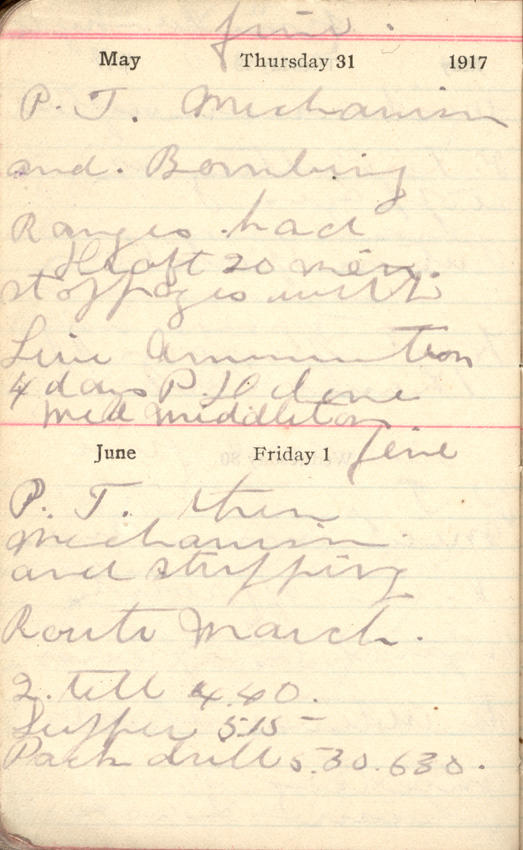 fine.
May Thursday 31 1917
P. T. Mechanism
and. Bombing
Ranges. had
draft 20 men.
stoppages with
Live Ammunition
4 days P. H done
Middleton
June Friday 1
fine
P. T. then
Mechanism.
and stripping
Route March.
2. till 4.40.
Supper 5.15 -
Pack drill 5.30. 630.